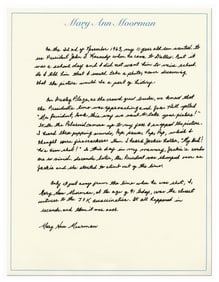 Mary Ann Moorman
On the 22nd of November 1963, my 11 year old son wanted to
see President John F. Kennedy when he came to Dallas. But it
was a school day and I did not want him to miss school.
So I told him that I would take a picture, never dreaming
that the picture would be a part of history.
In Dealey Plaza, as the crowd grew louder, we knew that
the President's limo was approaching and Jean Hill yelled
"Mr. President, look this way, we want to take your picture!"
With the Polaroid camera up to my face I snapped the picture.
I heard three popping sounds, Pop pause Pop, Pop, which I
thought were firecrackers. Then I heard Jackie holler, "My God!
he's been shot!" To this day in my memory, Jackie's words
are so vivid. Seconds later, the President was slumped over on
Jackie and she started to climb out of the limo.
Only feet away from the limo when he was shot, I,
Mary Ann Moorman, at the age of 31 today, was the closest
witness to the JFK assassination. It all happened in
seconds and then it was over.
Mary Ann Moorman